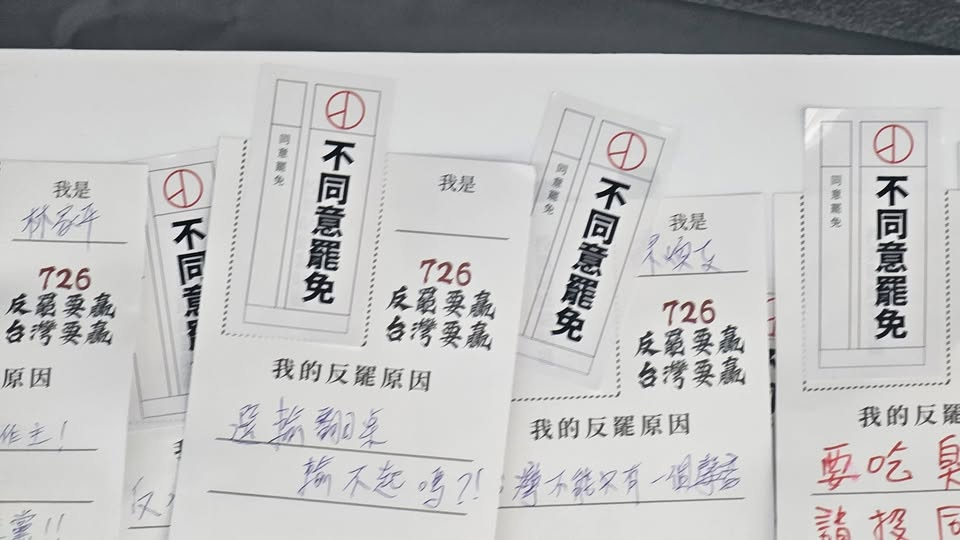 我是
林家平
726
反罷要贏
台灣要贏
原因
作主！
黨！！
不同
同意罷免
不同意罷免
我是
726
反罷要贏
台灣要贏
我的反罷原因
選輸翻桌
輸不起嗎？！
同意罷免
不同意罷免
我是
726
反罷要贏
台灣要贏
我的反罷原因
灣不能只有一個聲音
同意罷免
不同意罷免
我的反罷
要吃臭
請投同